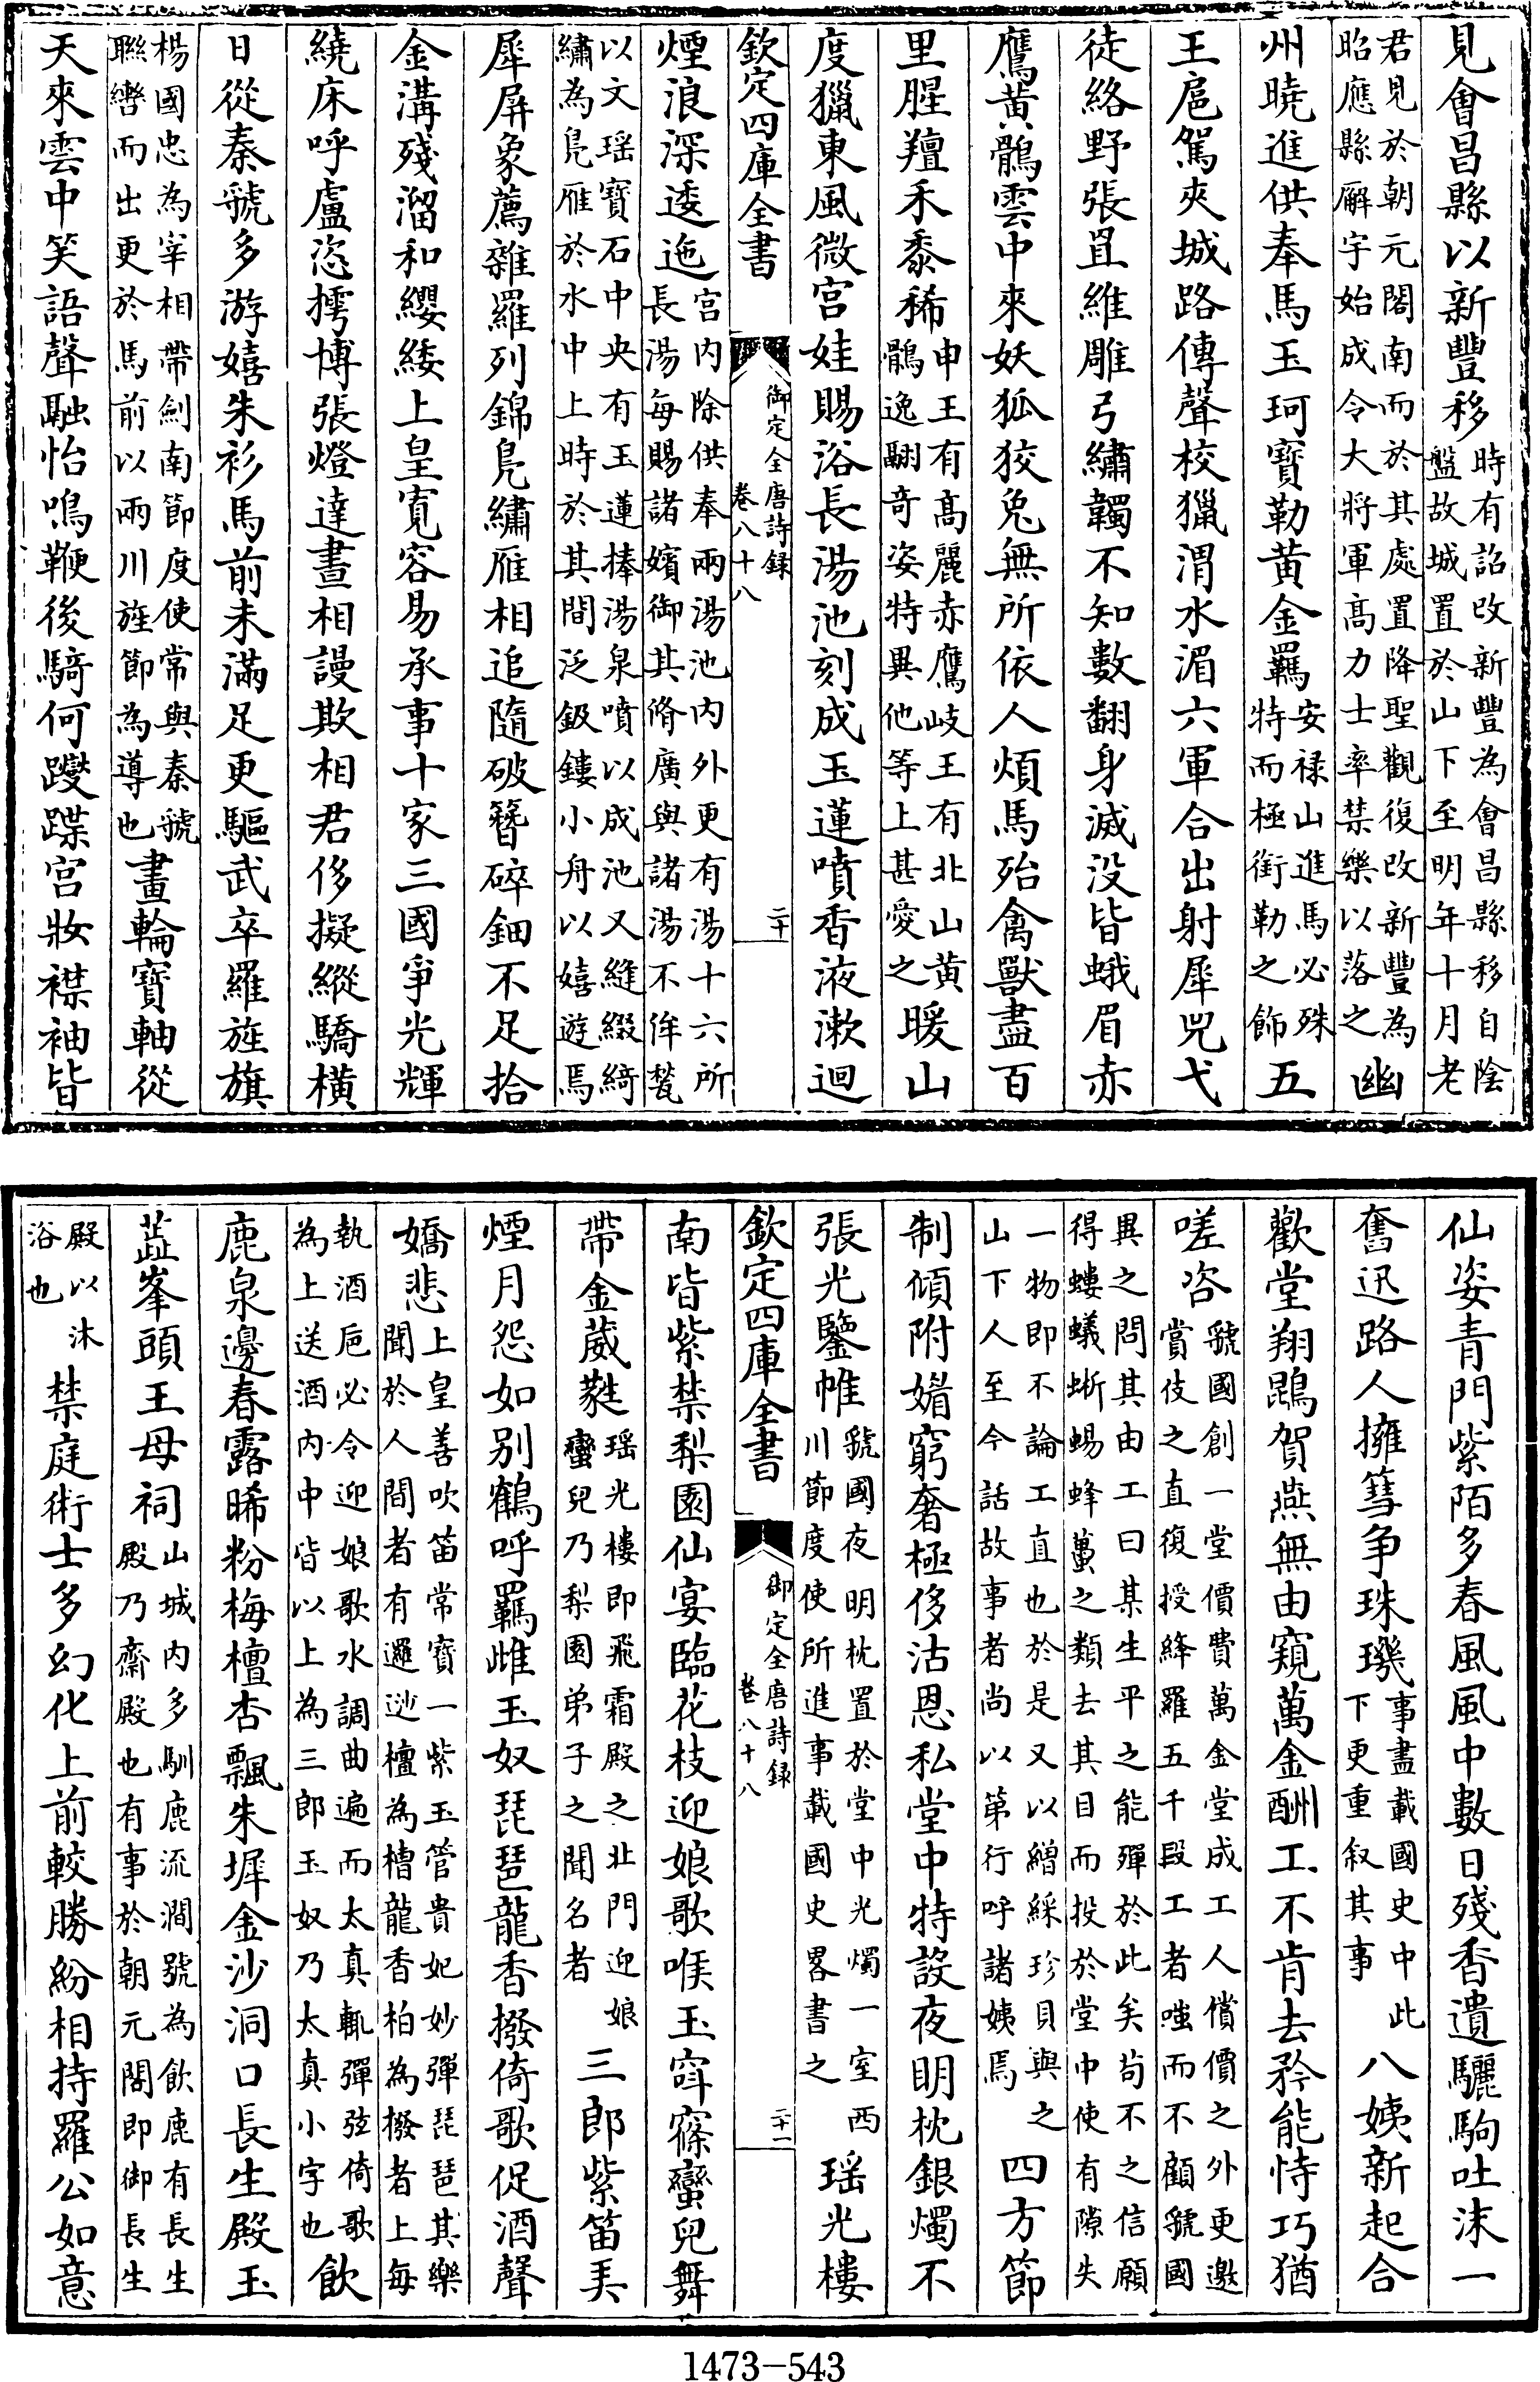 見會昌縣以新豐移時有詔改新豐為會昌縣移自陰盤故城置於山下至明年十月老
君見於朝元閣南而於其處置降聖觀復改新豐為昭應縣廨宇始成令大將軍髙力士率禁樂以落之幽
州曉進供奉馬玉珂寶勒黄金羈安禄山進馬必殊特而極銜勒之飾五
王扈駕夾城路傳聲校獵渭水湄六軍合出射犀兕弋
徒絡野張罝維雕弓繡韣不知數翻身滅没皆蛾眉赤
鷹黄鶻雲中來妖狐狡兎無所依人煩馬殆禽獸盡百
里腥羶禾黍稀申王有髙麗赤鷹岐王有北山黄鶻逸翮奇姿特異他等上甚愛之暖山
度獵東風微宫娃賜浴長湯池刻成玉蓮噴香液漱迴
欽定四庫全書 御定全唐詩録 卷八十八 二十
煙浪深逶迤宫内除供奉兩湯池内外更有湯十六所長湯每賜諸嬪御其脩廣與諸湯不侔甃
以文瑶寶石中央有玉蓮捧湯泉噴以成池又縫綴綺繡為鳬雁於水中上時於其間泛鈒鏤小舟以嬉遊焉
犀屏象薦雜羅列錦鳬繡雁相追隨破簪碎鈿不足拾
金溝殘溜和纓緌上皇寛容易承事十家三國爭光輝
繞床呼盧恣摴博張燈達晝相謾欺相君侈擬縱驕横
日從秦虢多游嬉朱衫馬前未滿足更驅武卒羅旌旗
楊國忠為宰相帶劍南節度使常與秦虢聯轡而出更於馬前以兩川旌節為導也畫輪寶軸從
天來雲中笑語聲融怡鳴鞭後騎何躞蹀宫妝襟袖皆
仙姿青門紫陌多春風風中數日殘香遺驪駒吐沫一
奮迅路人擁篲争珠璣事盡載國史中此下更重叙其事八姨新起合
歡堂翔鵾賀燕無由窺萬金酬工不肯去矜能恃巧猶
嗟咨虢國創一堂價費萬金堂成工人償價之外更邀賞伎之直復授絳羅五千段工者嗤而不顧虢國
異之問其由工曰某生平之能殫於此矣苟不之信願得螻蟻蜥蜴蜂蠆之類去其目而投於堂中使有隙失
一物即不論工直也於是又以繒綵珍貝與之山下人至今話故事者尚以第行呼諸姨焉四方節
制傾附媚窮奢極侈沽恩私堂中特設夜明枕銀燭不
張光鑒帷虢國夜明枕置於堂中光燭一室西川節度使所進事載國史畧書之瑶光樓
欽定四庫全書 御定全唐詩録 卷八十八 二十一
南皆紫禁梨園仙宴臨花枝迎娘歌喉玉窈窱蠻兒舞
帶金葳蕤瑶光樓即飛霜殿之北門迎娘蠻兒乃梨園弟子之聞名者三郎紫笛美
煙月怨如别鶴呼羈雌玉奴琵琶龍香撥倚歌促酒聲
嬌悲上皇善吹笛常寶一紫玉管貴妃妙彈琵琶其樂聞於人間者有邏逤檀為槽龍香柏為撥者上每
執酒巵必令迎娘歌水調曲遍而太真輒彈弦倚歌為上送酒内中皆以上為三郎玉奴乃太真小字也飲
鹿泉邊春露晞粉梅檀杏飄朱墀金沙洞口長生殿玉
蕋峯頭王母祠山城内多馴鹿流澗號為飲鹿有長生殿乃齋殿也有事於朝元閣即御長生
殿以沐浴也禁庭術士多幻化上前較勝紛相持羅公如意
1473-543